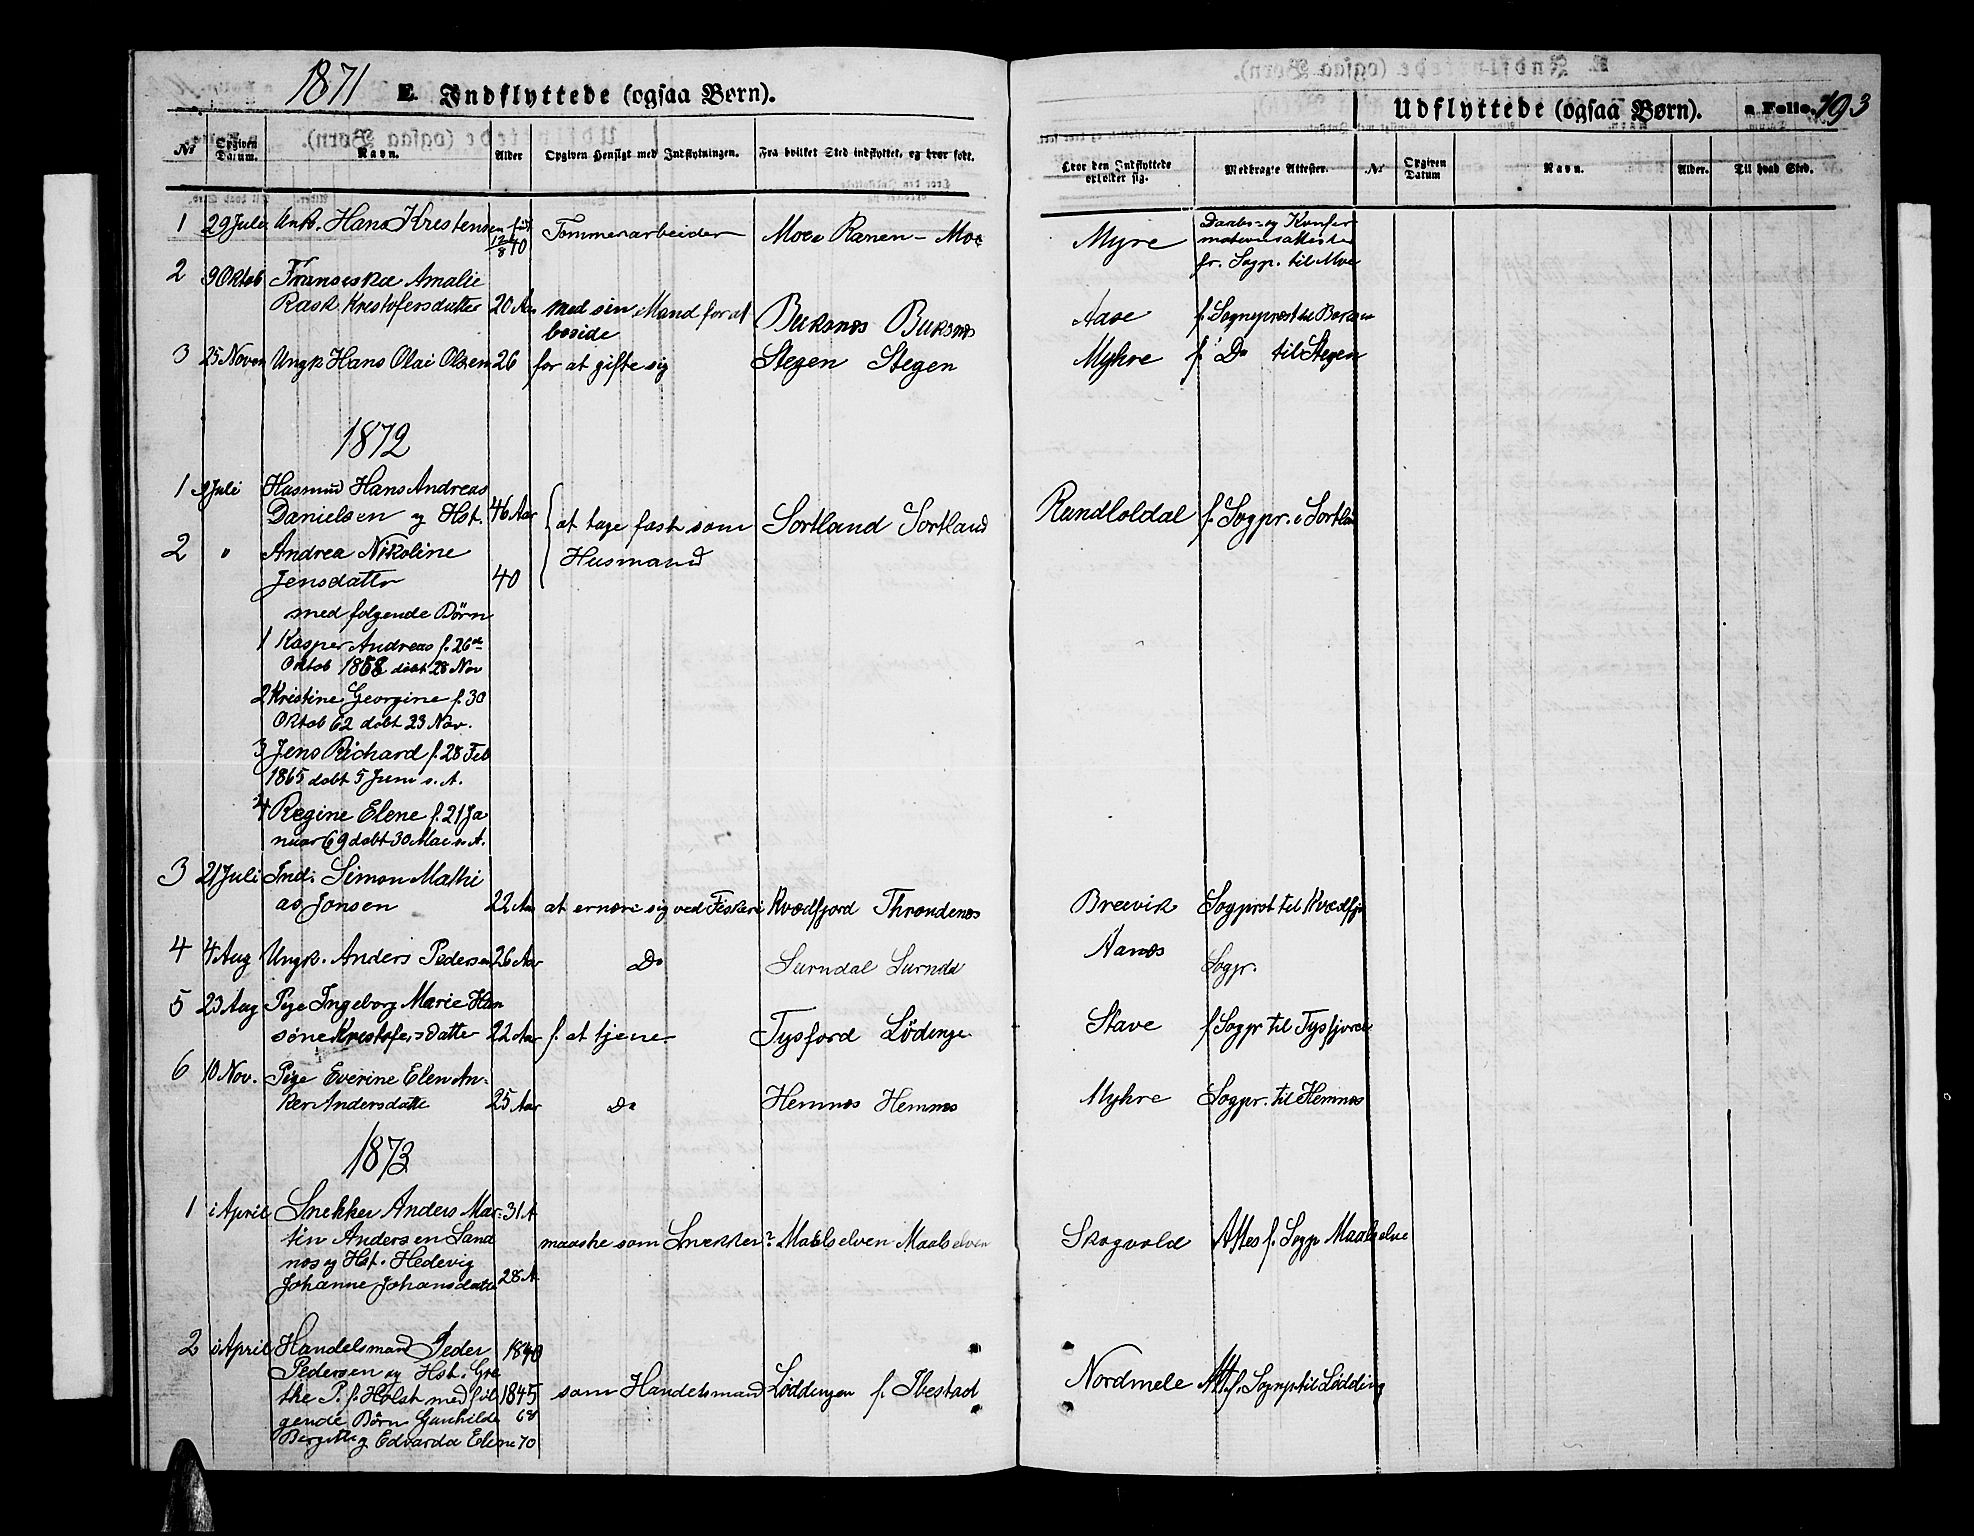 1871 E. Indflyttede (ogsaa Børn).
Udflyttede (ogsaa Børn). a Folio. 193
Nr Opgiven Datum. Navn. Alder Opgiven Hensigt med Indflytningen. Fra hvilket Sted indflyttet, og hvor født.
Hvor den Indflyttede opholder sig. Medbragte Attester. Nr Opgiven Datum Navn. Alder. Til hvad Sted.
1 29 Juli Unk. Hans Kristensen Tømmerarbeider Moe i Ranen - Moe Myre Daabs- og Konfir
mationsattester
fr. Sogp. til Moe
2 9 Oktob Fransiska Amalie
Rask Kristofersdatter 20 Aar med sin Mand for at Buksnæs Buksnæs Aase f. Sogneprest til
boside
3 25 Novem Ungk Hans Olai Olsen 26 for at gifte sig Stegen Stegen Myhre f. Do til Stegen
1872
1 9 Juli Husmnd Hans Andreas
Danielsen og Hst. 46 Aar at tage fast som Sortland Sortland f. Sogpr. i Sortland
2 " Andrea Nikoline Husmand
Jensdatter 40
med følgende Børn
1 Kasper Andreas f. 26de
Oktob 1858 døbt 28 Nov
2 Kristine Georgine f. 30
Oktob 62 døbt 23 Nov.
3 Jens Richard f. 28 Feb
1865 døbt 5 Juni s. A.
4 Regine Elene f. 21 Ja
nuar 69 døbt 30 Mai s. A.
3 21 Juli Ind. Simon Mathi
as Jonsen 22 Aar at ernære sig ved Fiskeri Kvædfjord Throndenæs Breivik Sogprst til Kvædfj
4 4 Aug Ungk. Anders Pedersen 26 Aar Do Surndal Surndal Aanæs Sogpr.
5 23 Aug Pige Ingeborg Marie Han
sine Kristofersdatter 22 Aar f. at tjene Tysfjord Lødinge Stave f. Sogpr til Tysfjord
6 10 Nov. Pige Everine Elen An-
ker Andersdatte 25 Aar Do Hemnæs Hemnæs Myhre Sogpr. til Hemnæs
1873
1 i April Snekker Anders Mar- 31 A
tin Andersen Sand maaske som Snekker? Maalselven Maalselven Skogvold Attes f. Sogp Maalselve
næs og Hst. Hedevig
Johanne Johansdatte 28 A
2 i April Handelsmand Peder 1840
Pedersen og Hst. Gre
the P. f. Holst med føl 1845 som Handelsmand Løddingen f. Ibestad Nordmele Att. f. Sognp til Lødding
gende Børn Gunhilde 68
Bergitte og Edvarda Elene 70